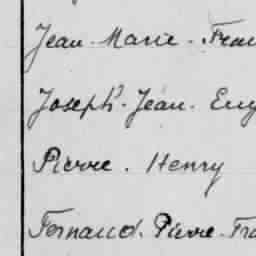 Jean. Marie. Fran
Joseph. Jean. Eug
Pierre. Henry
Fernand. Pierre. Fra